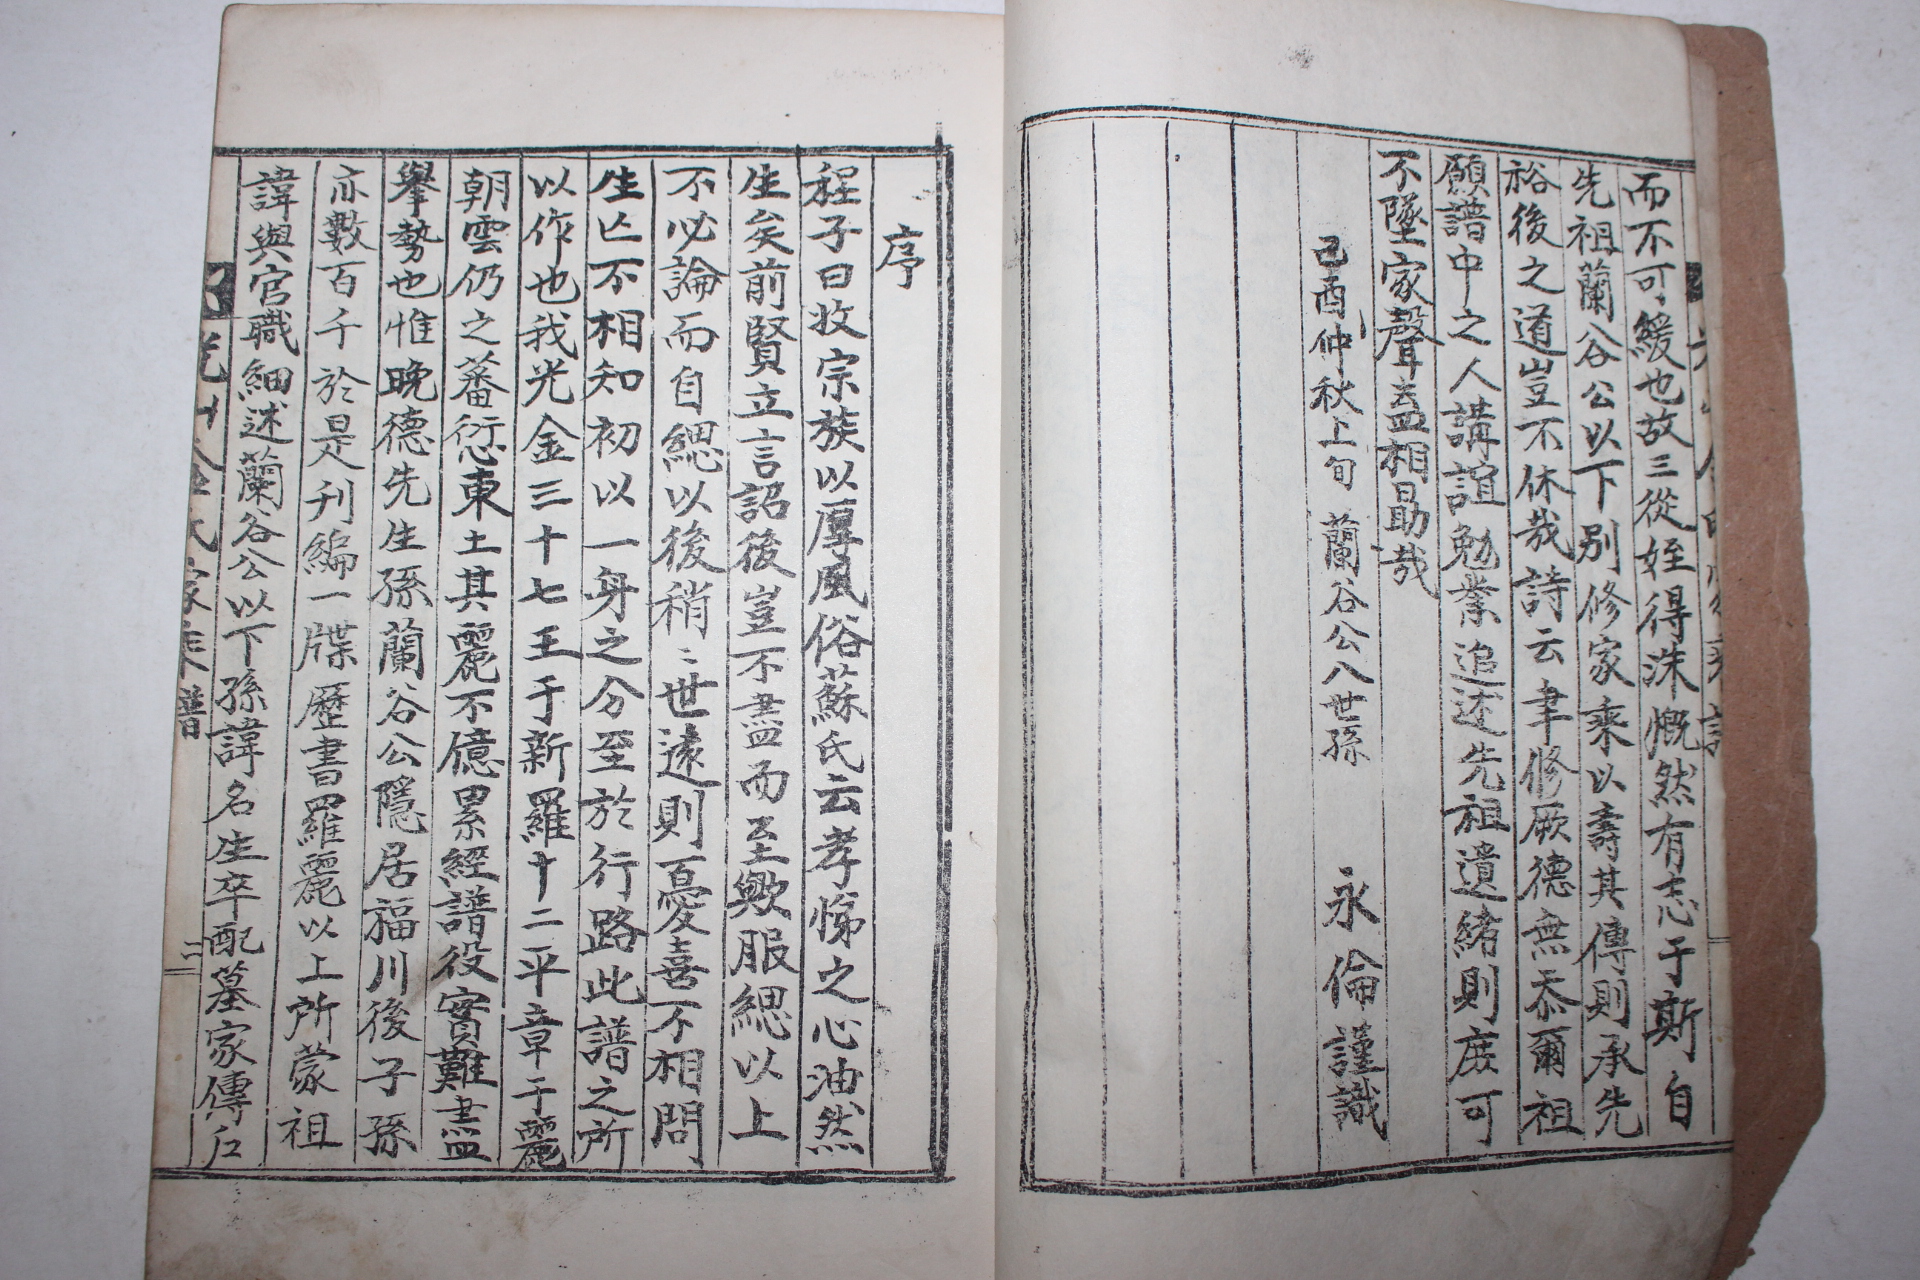 而不可緩也故三從姪得洙慨然有志于斯自
先祖蘭谷公以下別修家乘以壽其傳則承先
裕後之道豈不休哉詩云聿修厥德無忝爾祖
願譜中之人講誼勉業追述先祖遺緒則庶可
不墜家聲盍相勗哉
己酉仲秋上旬 蘭谷公八世孫 永倫謹識
序
程子曰收宗族以厚風俗蘇氏云孝悌之心油然
生矣前賢立言詔後豈不盡而至歟服緦以上
不必論而自緦以後稍〻世遠則憂喜不相問
生亡不相知初以一身之分至於行路此譜之所
以作也我光金三十七王于新羅十二平章于麗
朝雲仍之蕃衍東土其麗不億累經譜役實難盡
擧勢也惟晩德先生孫蘭谷公隱居福川後子孫
亦數百千於是刋編一牒歷書羅麗以上所蒙祖
諱與官職細述蘭谷公以下孫諱名生卒配墓家傳
光州金氏家乘譜 二